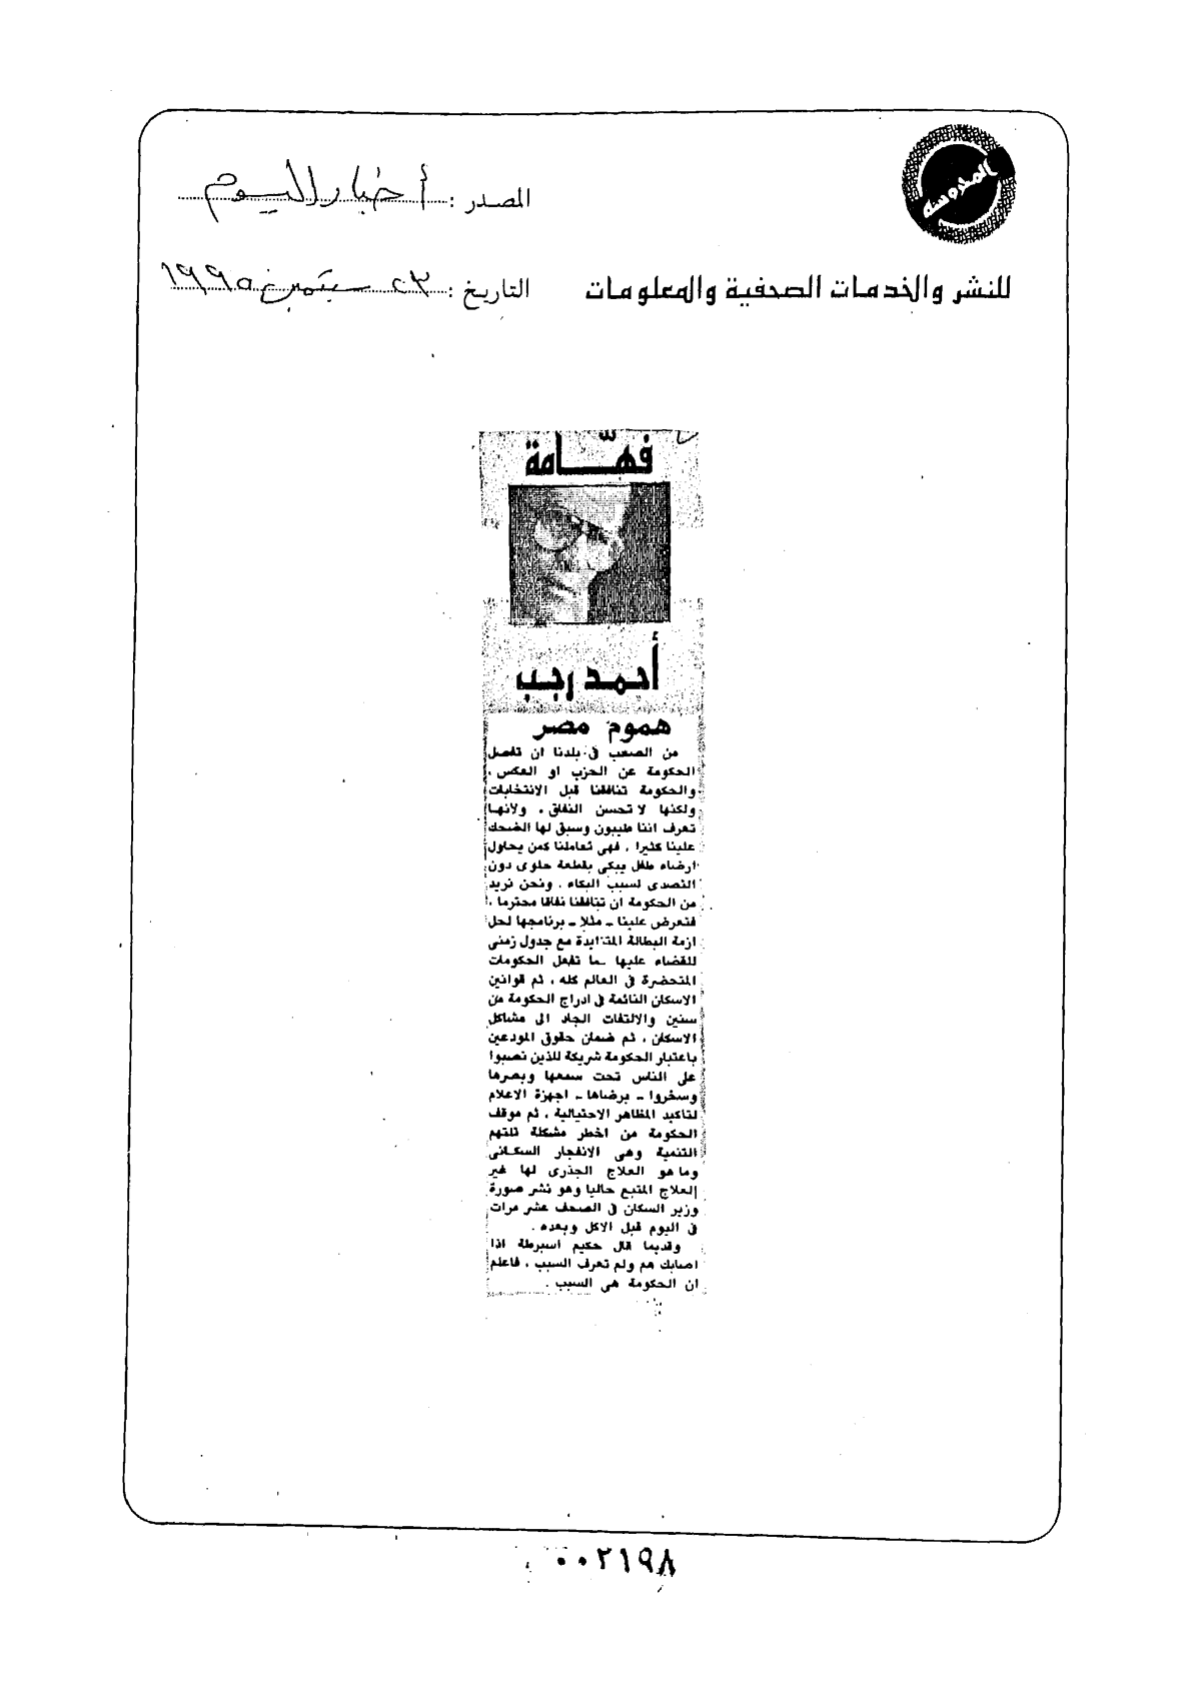 المدوسه
المصدر : أخبار اليوم
للنشر والخدمات الصحفية والمعلومات
التاريخ : ٢٣ سبتمبر ١٩٩٥
فهّامة
أحمد رجب
هموم مصر
من الصعب فى بلدنا ان تفصل
الحكومة عن الحزب او العكس ،
والحكومة تنافقنا قبل الانتخابات
ولكنها لا تحسن النفاق ، ولانها
تعرف اننا طيبون وسبق لها الضحك
علينا كثيرا ، فهى تعاملنا كمن يحاول
ارضاء طفل يبكى بقطعة حلوى دون
التصدى لسبب البكاء . ونحن نريد
من الحكومة ان تنافقنا نفاقا محترما ،
فتعرض علينا - مثلا - برنامجها لحل
ازمة البطالة المتزايدة مع جدول زمنى
للقضاء عليها ـما تفعل الحكومات
المتحضرة فى العالم كله ، ثم قوانين
الاسكان النائمة فى ادراج الحكومة من
سنين والالتفات الجاد الى مشاكل
الاسكان ، ثم ضمان حقوق المودعين
باعتبار الحكومة شريكة للذين نصبوا
على الناس تحت سمعها وبصرها
وسخروا - برضاها - اجهزة الاعلام
لتاكيد المظاهر الاحتيالية ، ثم موقف
الحكومة من اخطر مشكلة تلتهم
التنمية وهى الانفجار السكانى
وما هو العلاج الجذرى لها غير
العلاج المتبع حاليا وهو نشر صورة
وزير السكان فى الصحف عشر مرات
فى اليوم قبل الاكل وبعده .
وقديما قال حكيم اسبرطة اذا
اصابك هم ولم تعرف السبب ، فاعلم
ان الحكومة هى السبب .
٠٠٢١٩٨